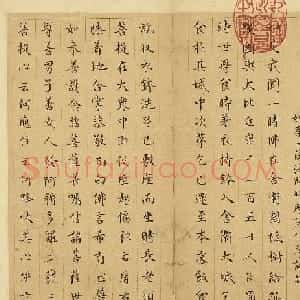 是我聞一時佛在舍衛國祇樹給孤
獨園與大比丘衆千二百五十人俱
世尊食時著衣持鉢入舍衛大城
食於其城中次第乞已還至本處飯
訖收衣鉢洗足已敷座而坐時長老須
菩提在大衆中即從座起偏袒右肩右
膝著地合掌恭敬而白佛言希有世尊
如來善護念諸菩薩善付囑諸菩薩世
尊善男子善女人發阿耨多羅三藐三
菩提心云何應住云何降伏其心佛
Shufaziliao.com